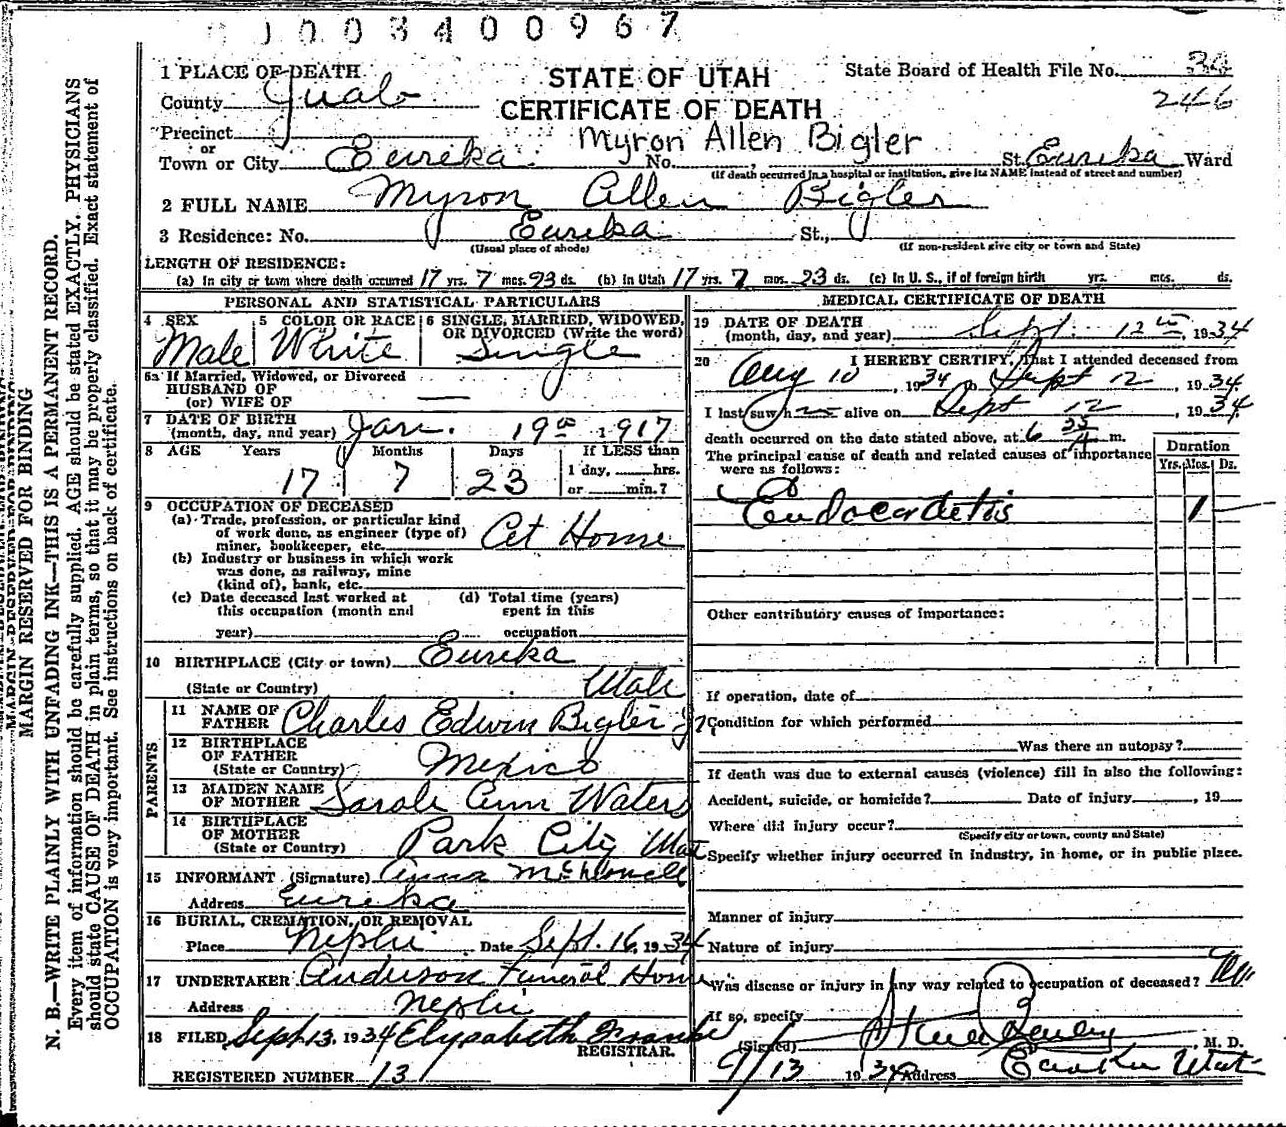 1003400967
1 PLACE OF DEATH
STATE OF UTAH
State Board of Health File No. 34
County Juab
CERTIFICATE OF DEATH
246
Precinct
or
Myron Allen Bigler
Town or City Eureka No. , St. Eureka Ward
(If death occurred in a hospital or institution, give its NAME instead of street and number)
2 FULL NAME Myron Allen Bigler
3 Residence: No. Eureka St.,
(Usual place of abode) (If non-resident give city or town and State)
LENGTH OF RESIDENCE:
(a) In city or town where death occurred 17 yrs. 7 mos. 23 ds. (b) In Utah 17 yrs. 7 mos. 23 ds. (c) In U. S., if of foreign birth yrs. mos. ds.
PERSONAL AND STATISTICAL PARTICULARS
4 SEX 5 COLOR OR RACE 6 SINGLE, MARRIED, WIDOWED,
OR DIVORCED (Write the word)
Male White Single
6a If Married, Widowed, or Divorced
HUSBAND OF
(or) WIFE OF —
7 DATE OF BIRTH
(month, day, and year) Jan. 19th 1917
8 AGE Years Months Days If LESS than
1 day, hrs.
17 7 23 or min.?
9 OCCUPATION OF DECEASED
(a) Trade, profession, or particular kind
of work done, as engineer (type of)
miner, bookkeeper, etc. At Home
(b) Industry or business in which work
was done, as railway, mine
(kind of), bank, etc.
(c) Date deceased last worked at (d) Total time (years)
this occupation (month and spent in this
year) occupation
10 BIRTHPLACE (City or town) Eureka
(State or Country) Utah
PARENTS
11 NAME OF
FATHER Charles Edwin Bigler Jr
12 BIRTHPLACE
OF FATHER
(State or Country) Mexico
13 MAIDEN NAME
OF MOTHER Sarah Ann Waters
14 BIRTHPLACE
OF MOTHER
(State or Country) Park City Utah
15 INFORMANT (Signature) Anna McDowell
Address Eureka
16 BURIAL, CREMATION, OR REMOVAL
Place Nephi Date Sept. 16, 1934
17 UNDERTAKER Anderson Funeral Home
Address Nephi
18 FILED Sept. 13, 1934 Elyzabeth
REGISTRAR.
REGISTERED NUMBER 131
MEDICAL CERTIFICATE OF DEATH
19 DATE OF DEATH
(month, day, and year) Sept. 12th, 1934
20 I HEREBY CERTIFY, That I attended deceased from
Aug 10, 1934 to Sept 12, 1934
I last saw h alive on Sept 12, 1934
death occurred on the date stated above, at 6 35 A m.
The principal cause of death and related causes of importance
were as follows:
Duration
Yrs. Mos. Ds.
Endocardetis 1
Other contributory causes of importance:
If operation, date of
Condition for which performed
Was there an autopsy?
If death was due to external causes (violence) fill in also the following:
Accident, suicide, or homicide? Date of injury , 19
Where did injury occur?
(Specify city or town, county and State)
Specify whether injury occurred in industry, in home, or in public place.
Manner of injury
Nature of injury
Was disease or injury in any way related to occupation of deceased? No
If so, specify
(Signed) , M. D.
9/13 1934 Address Eureka Utah
MARGIN RESERVED FOR BINDING
N. B.—WRITE PLAINLY WITH UNFADING INK—THIS IS A PERMANENT RECORD.
Every item of information should be carefully supplied. AGE should be stated EXACTLY. PHYSICIANS
should state CAUSE OF DEATH in plain terms, so that it may be properly classified. Exact statement of
OCCUPATION is very important. See instructions on back of certificate.